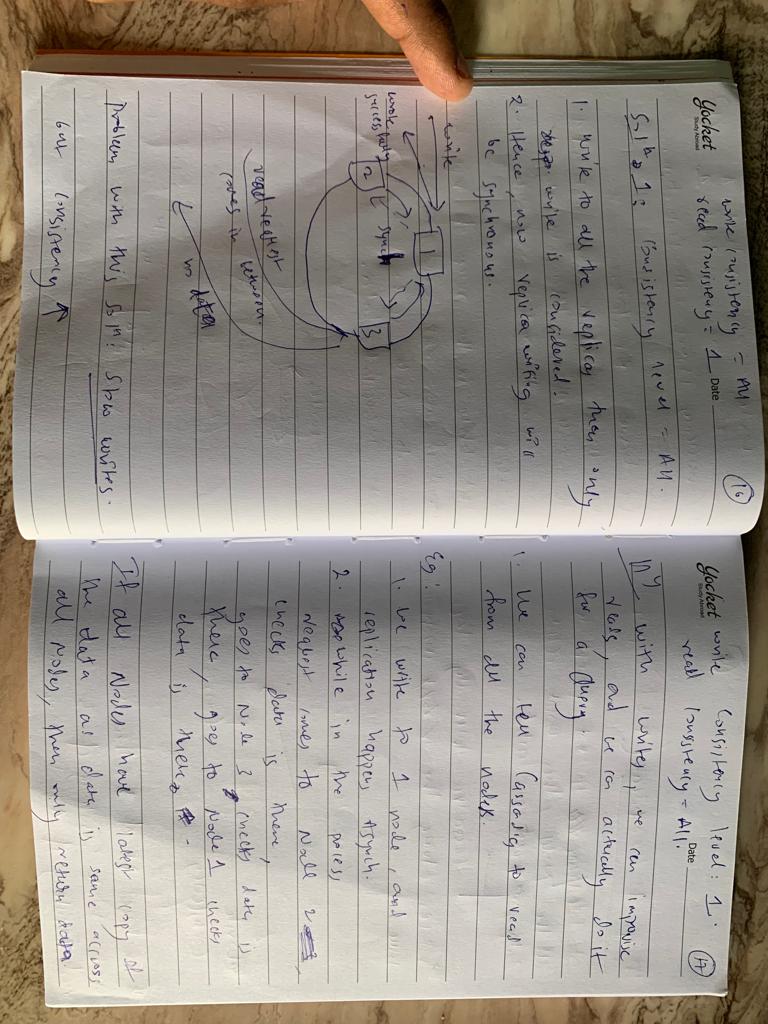 write consistency = All
16
Yocket
Study Abroad
read consistency = 1 Date
Solⁿ 1: Consistency level = All.
1. Write to all the replicas then only
write is considered.
2. Hence, now replica writing will
be synchronous.
write
1
wrote
successfully
2
synch
3
read request
comes in between.
no data
Problem with this Solⁿ: Slow writes.
but consistency ↑
write Consistency level: 1.
17
Yocket
Study Abroad
read consistency = All.
Date
lly with writes, we can improvise
reads, and we can actually do it
for a Query.
1. We can tell Cassandra to read
from all the nodes.
Eg:
1. We write to 1 node, and
replication happens Asynch.
2. while in the process
request comes to Node 2
checks data is there,
goes to Node 3, checks data is
there, goes to Node 1 checks
data is there.
If all Nodes have latest copy of
the data as data is same accross
all Nodes, then only return data.